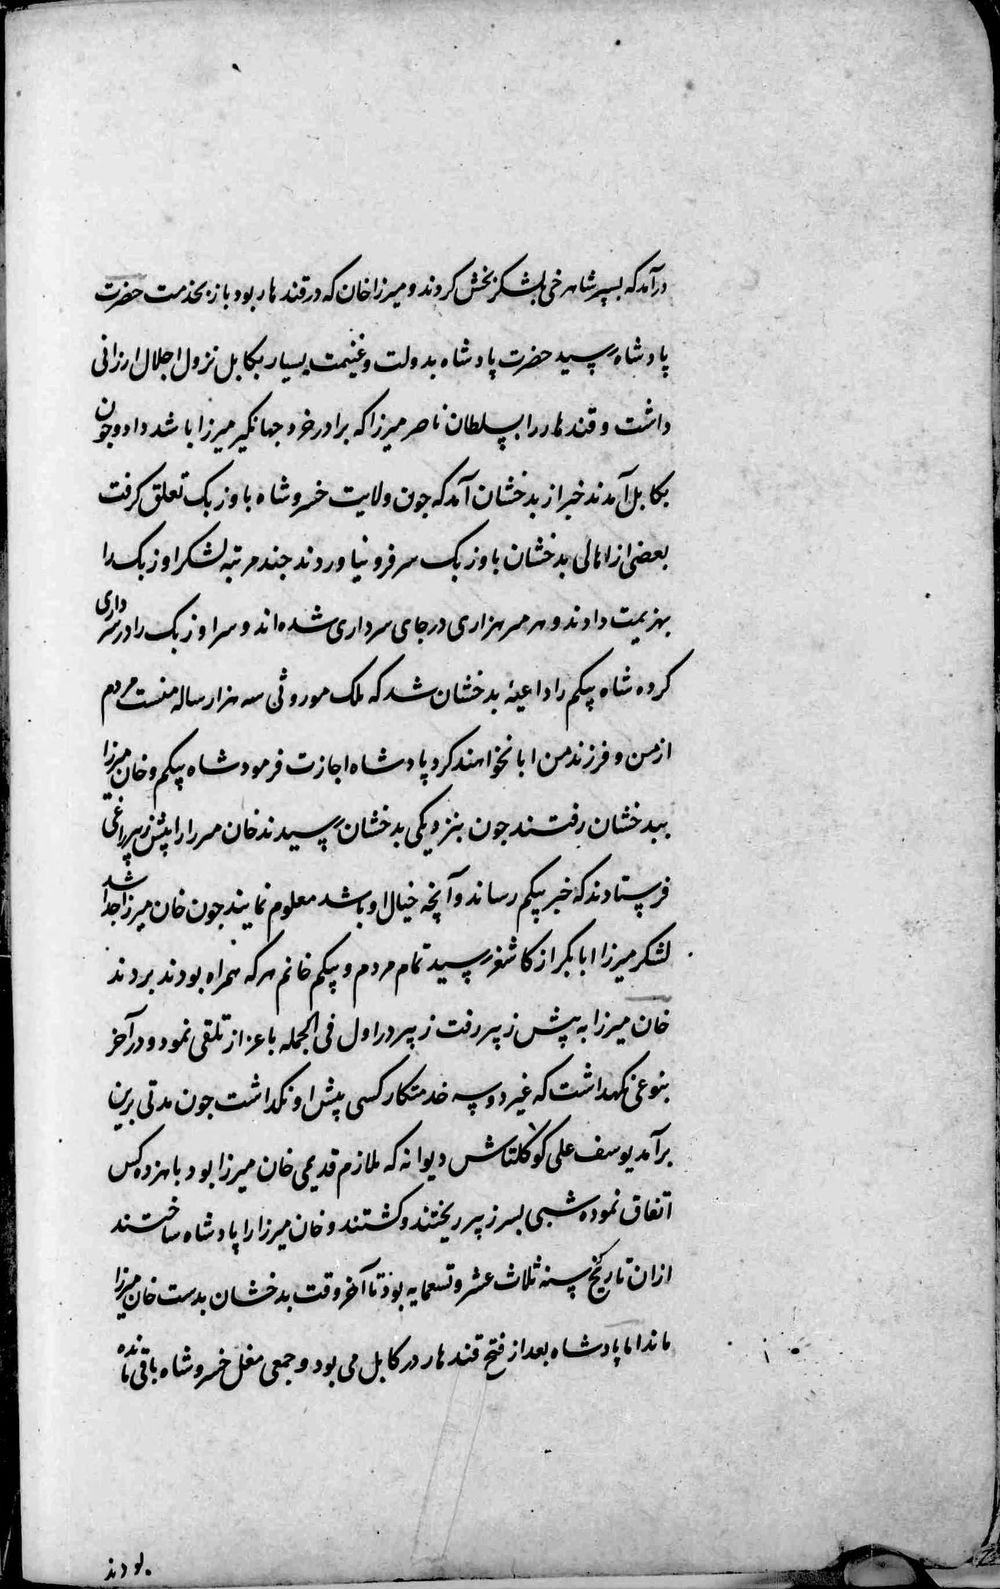 درآمد که بسپر شاهرخی بلشکر بخش کردند و میرزا خان که در قندهار بود باز بخدمت حضرت
پادشاه رسید حضرت پادشاه بدولت و غنیمت بسیار بکابل نزول اجلال ارزانی
داشت و قندهار را بسلطان ناصر میرزا که برادر خرد جهانگیر میرزا باشد داد و چون
بکابل آمدند خبر از بدخشان آمد که جون ولایت خسرو شاه باوزبک تعلق کرفت
بعضی از اهالی بدخشان باوزبک سر فرو نیاوردند جند مرتبه لشکر اوزبک را
بهزیمت دادند و هر میر هزاری در جای سرداری شده اند و سر اوزبک را در سر داری
کرده شاه بیکم را داعیهٔ بدخشان شد که ملک موروثی سه هزار ساله منست مردم
از من و فرزند من ابا نخواهند کرد پادشاه اجازت فرمود شاه بیکم و خان میرزا
ببدخشان رفتند جون بنزدیکی بدخشان رسیدند خان میرزا را پیش زبیر راغی
فرستادند که خبر بیکم رساند و آنچه خیال او باشد معلوم نمایند جون خان میرزا جدا شد
لشکر میرزا ابابکر از کاشغر رسید تمام مردم و بیکم خانم هر که همراه بودند بردند
خان میرزا به پیش زبیر رفت زبیر در اول فی الجمله باعزاز تلقی نمود و در آخر
بنوعی نکهداشت که غیر دو سه خدمتکار کسی پیش او نکذاشت جون مدتی برین
برآمد یوسف علی کوکلتاش دیوانه که ملازم قدیمی خان میرزا بود با هزده کس
اتفاق نموده شبی بسر زبیر ریختند و کشتند و خان میرزا را پادشاه ساختند
از ان تاریخ سنه ثلاث عشر و تسعمایه بود تا آخر وقت بدخشان بدست خان میرزا
ماند اما پادشاه بعد از فتح قندهار در کابل می بود و جمعی مغل خسرو شاه باقی مانده
بودند